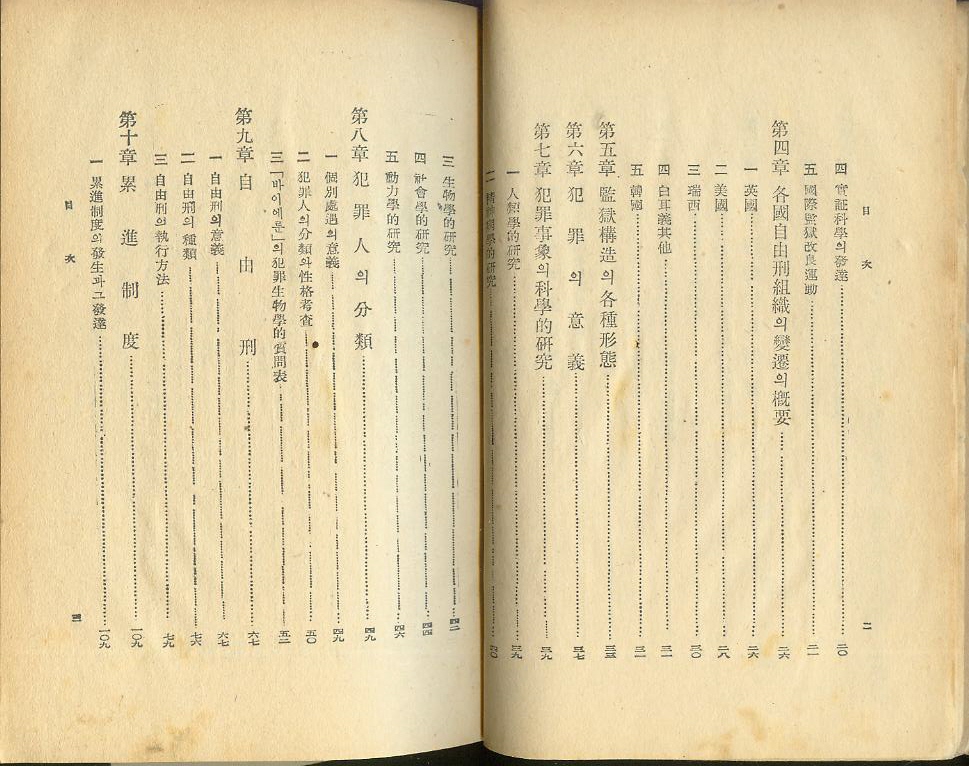 目次
四 實証科學의發達 二〇
五 國際監獄改良運動 二一
第四章 各國自由刑組織의變遷의槪要 二六
一 英國 二六
二 美國 二八
三 瑞西 三〇
四 白耳義其他 三一
五 韓國 三一
第五章 監獄構造의各種形態 三三
第六章 犯罪의意義 三七
第七章 犯罪事象의科學的硏究 三九
一 人類學的硏究 三九
二 精神病學的硏究 四〇
二
三 生物學的硏究 四二
四 社會學的硏究 四四
五 動力學的硏究 四六
第八章 犯罪人의分類 四九
一 個別處遇의意義 四九
二 犯罪人의分類와性格考査 五〇
三 「바이에룬」의犯罪生物學的質問表 五二
第九章 自由刑 六七
一 自由刑의意義 六七
二 自由刑의種類 七六
三 自由刑의執行方法 七九
第十章 累進制度 一〇九
一 累進制度의發生과그發達 一〇九
目次
三